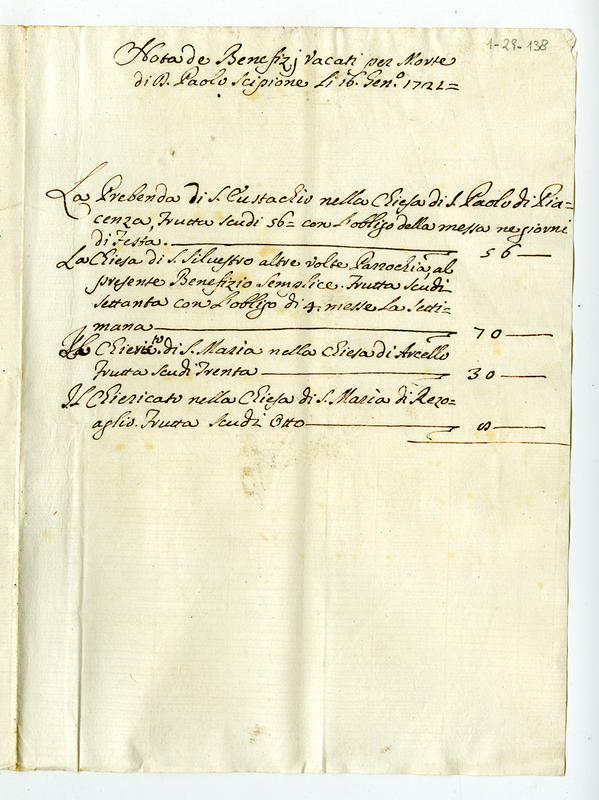 1-29-138
Nota de Benefizj vacati per Morte
di D. Paolo Scipione li 16. Gen.º 1721=
La Prebenda di S. Eustachio nella Chiesa di S. Paolo di Pia=
cenza, Frutta scudi 56= con l'obligo della messa ne giorni
di Festa. 56
La Chiesa di S. Silvestro altre volte Parochia, al
presente Benefizio Semplice. Frutta scudi
settanta con l'obligo di 4. messe la setti=
mana 70
Il Chiericto di S. Maria nella Chiesa di Arcello
Frutta scudi Trenta 30
Il Chiericato nella Chiesa di S. Maria di Rezo=
aglio. Frutta scudi Otto 8